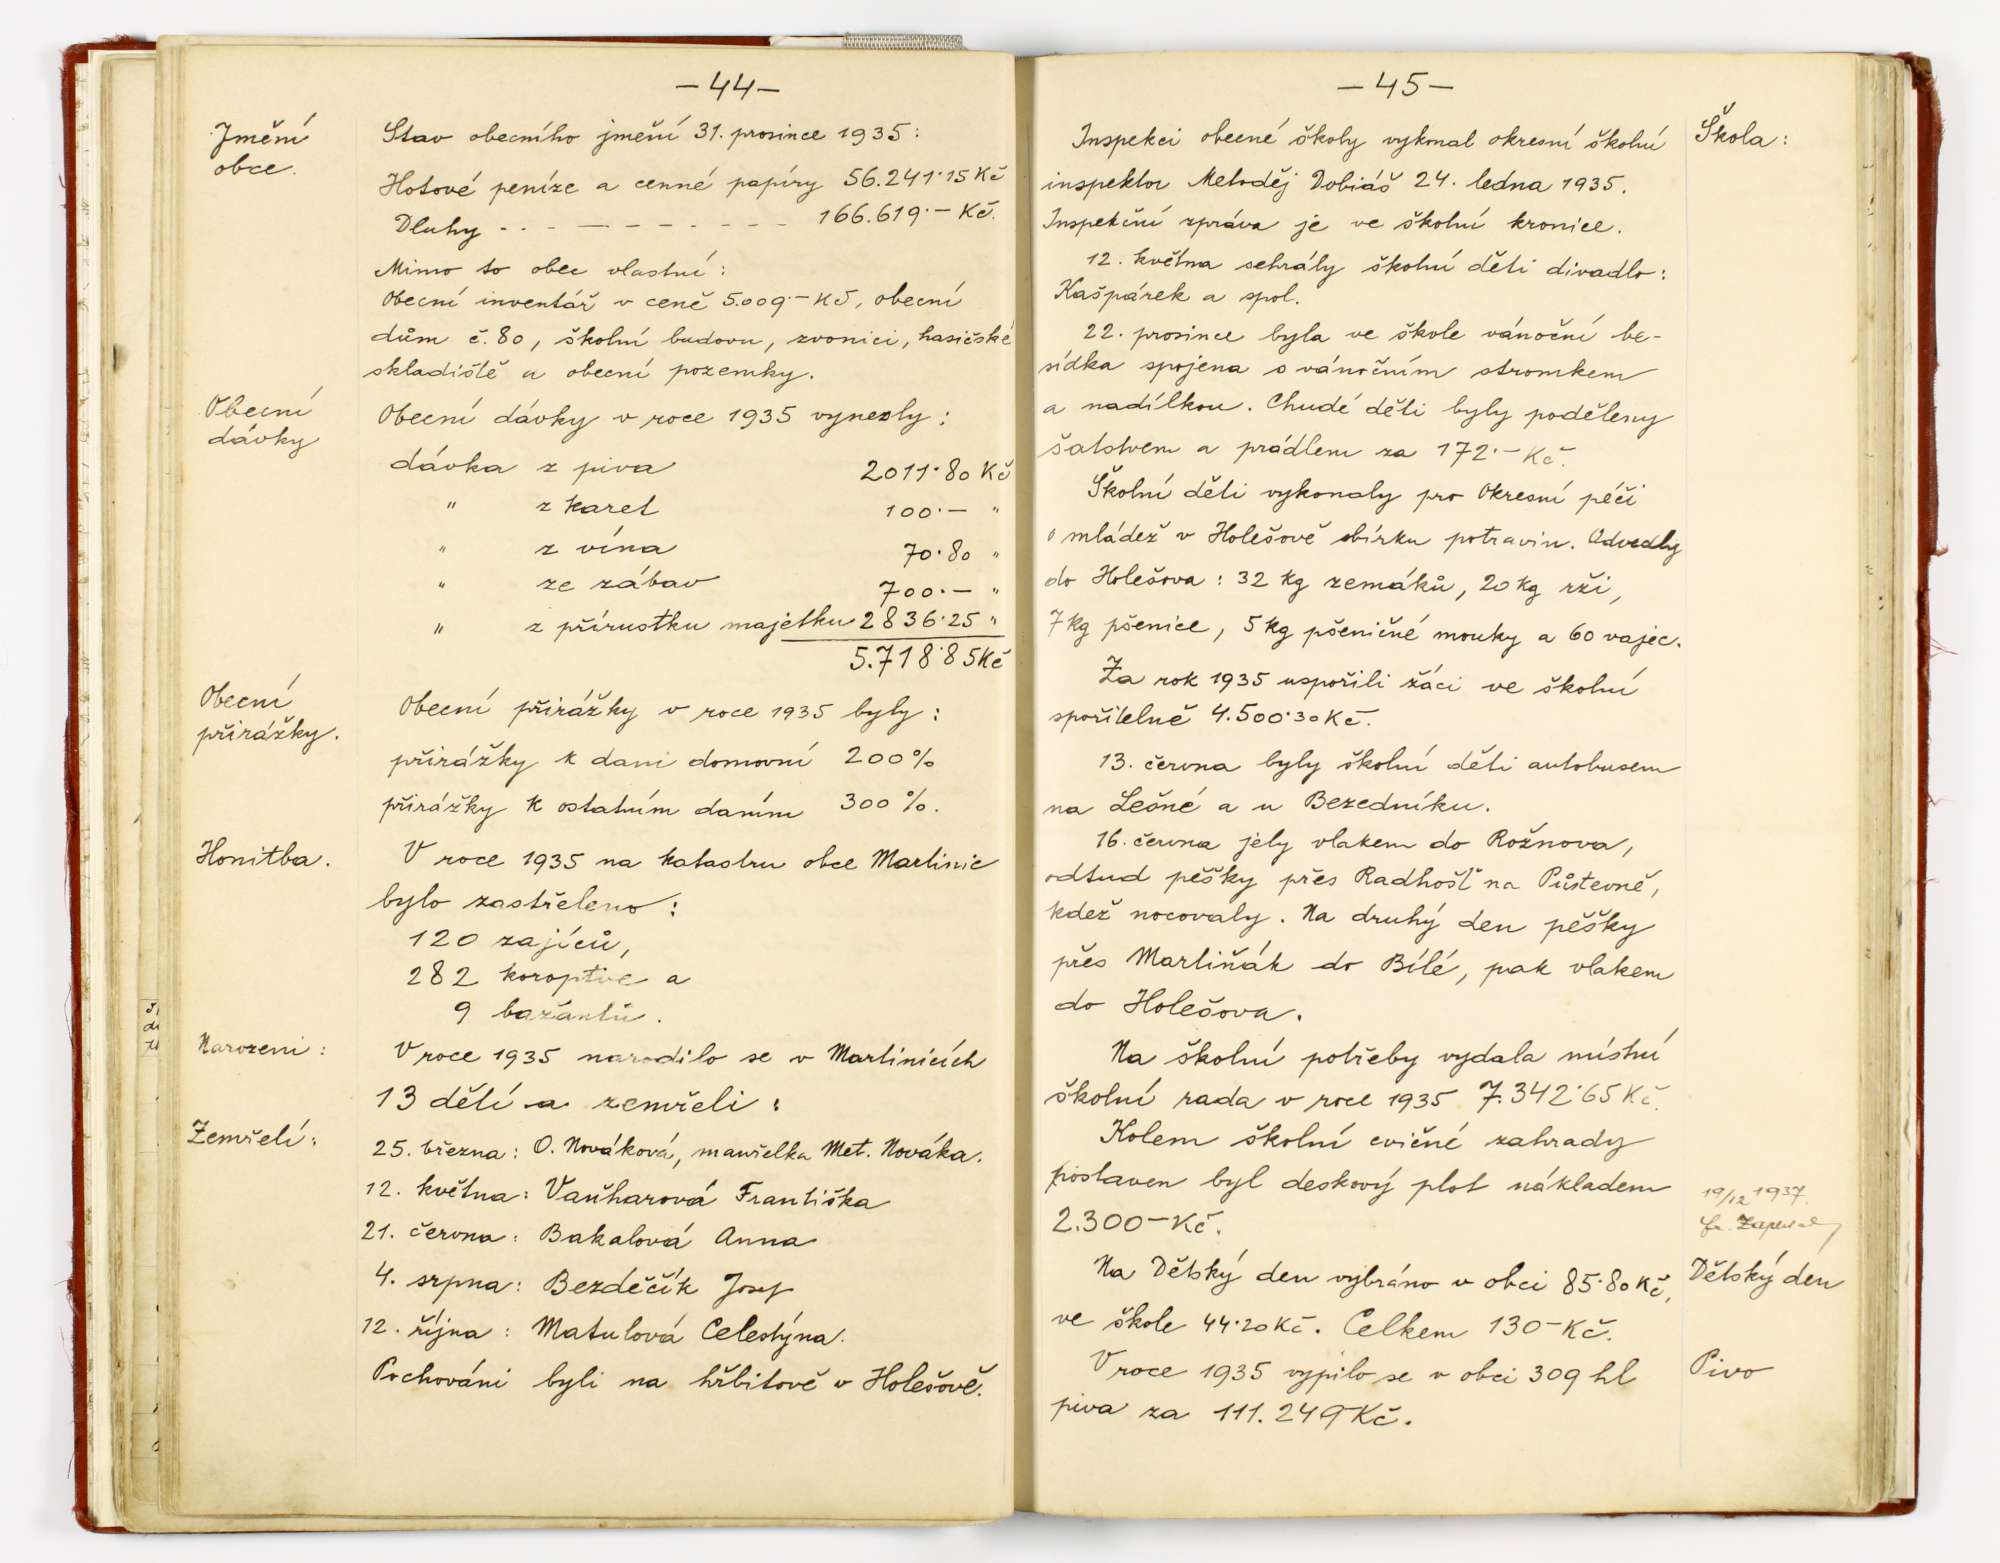 – 44 –
Jmění
obce.
Stav obecního jmění 31. prosince 1935:
Hotové peníze a cenné papíry 56.241·15 Kč
Dluhy - - - - - - - - - - 166.619·– Kč.
Mimo to obec vlastní:
Obecní inventář v ceně 5.009·– Kč, obecní
dům č. 80, školní budovu, zvonici, hasičské
skladiště a obecní pozemky.
Obecní
dávky
Obecní dávky v roce 1935 vynesly:
dávka z piva 2011·80 Kč
" z karet 100·– "
" z vína 70·80 "
" ze zábav 700·– "
" z přírustku majetku 2836·25 "
5.718·85 Kč
Obecní
přirážky.
Obecní přirážky v roce 1935 byly:
přirážky k dani domovní 200%
přirážky k ostatním daním 300%.
Honitba.
V roce 1935 na katastru obce Martinic
bylo zastřeleno:
120 zajíců,
282 koroptve a
9 bažantů.
Narozeni:
V roce 1935 narodilo se v Martinicích
13 dětí a zemřeli:
Zemřelí:
25. března: O. Nováková, manželka Met. Nováka.
12. května: Vaňharová Františka
21. června: Bakalová Anna
4. srpna: Bezděčík Josef
12. října: Matulová Celestýna.
Pochováni byli na hřbitově v Holešově.
– 45 –
Škola:
Inspekci obecné školy vykonal okresní školní
inspektor Metoděj Dobiáš 24. ledna 1935.
Inspekční zpráva je ve školní kronice.
12. května sehrály školní děti divadlo:
Kašpárek a spol.
22. prosince byla ve škole vánoční be-
sídka spojena s vánočním stromkem
a nadílkou. Chudé děti byly poděleny
šatstvem a prádlem za 172·– Kč.
Školní děti vykonaly pro Okresní péči
o mládež v Holešově sbírku potravin. Odvedly
do Holešova: 32 kg zemáků, 20 kg rži,
7 kg pšenice, 5 kg pšeničné mouky a 60 vajec.
Za rok 1935 uspořili žáci ve školní
spořitelně 4.500·30 Kč.
13. června byly školní děti autobusem
na Lešné a u Bezedníku.
16. června jely vlakem do Rožnova,
odtud pěšky přes Radhošť na Půstevně,
kdež nocovaly. Na druhý den pěšky
přes Martiňák do Bílé, pak vlakem
do Holešova.
Na školní potřeby vydala místní
školní rada v roce 1935 7.342·65 Kč.
Kolem školní cvičné zahrady
postaven byl deskový plot nákladem
2.300– Kč.
19/12 1937.
Dětský den
Na Dětský den vybráno v obci 85·80 Kč,
ve škole 44·20 Kč. Celkem 130– Kč.
Pivo
V roce 1935 vypilo se v obci 309 hl
piva za 111.249 Kč.